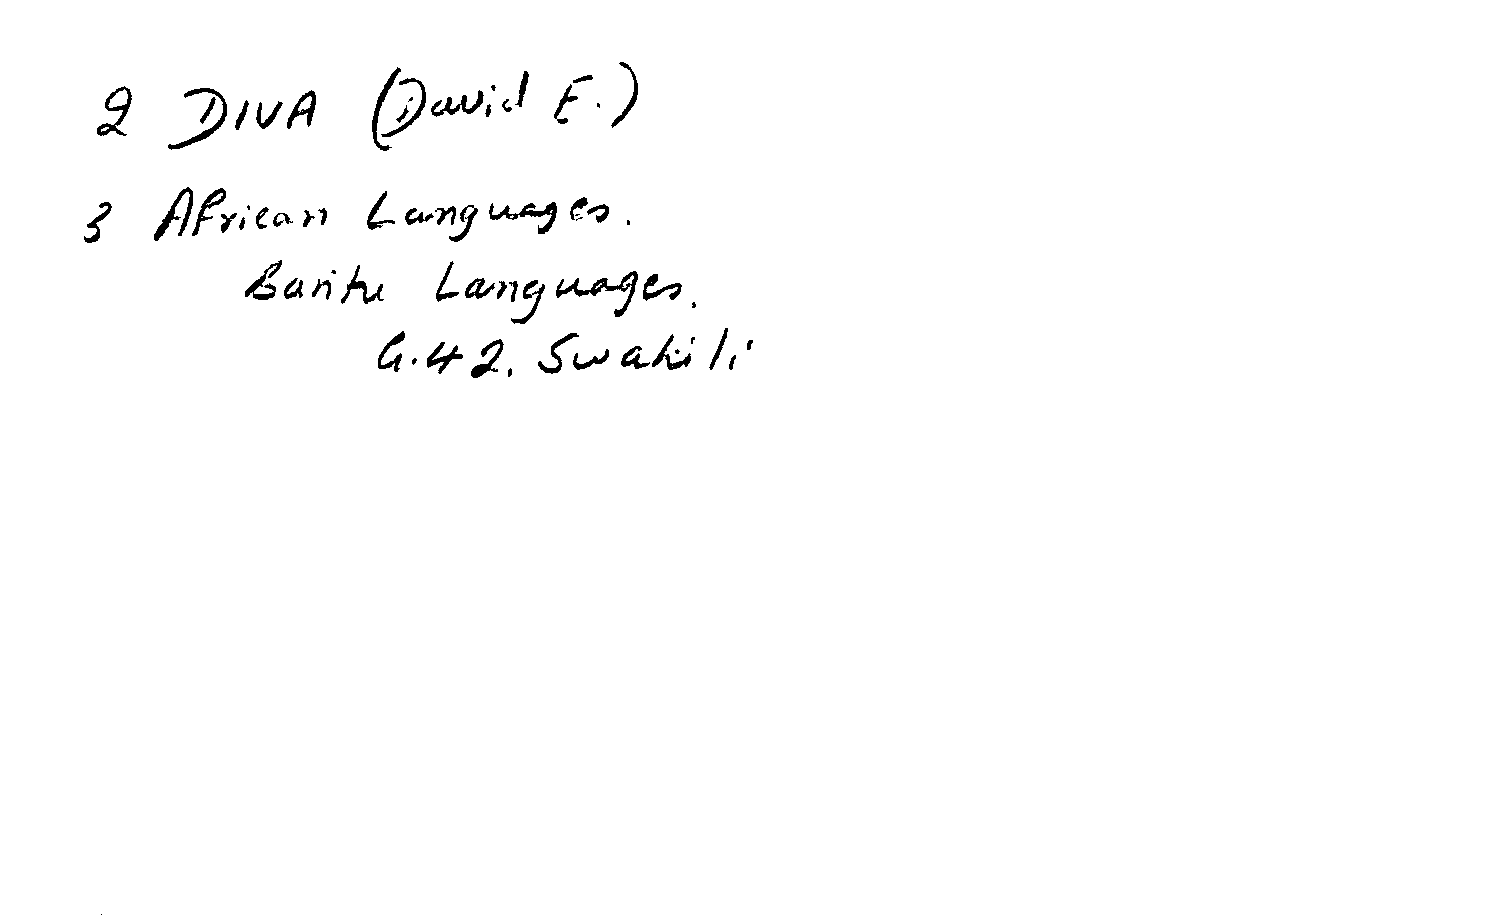 2 DIVA (David E.)
3 African Languages.
Bantu Languages.
G.42. Swahili